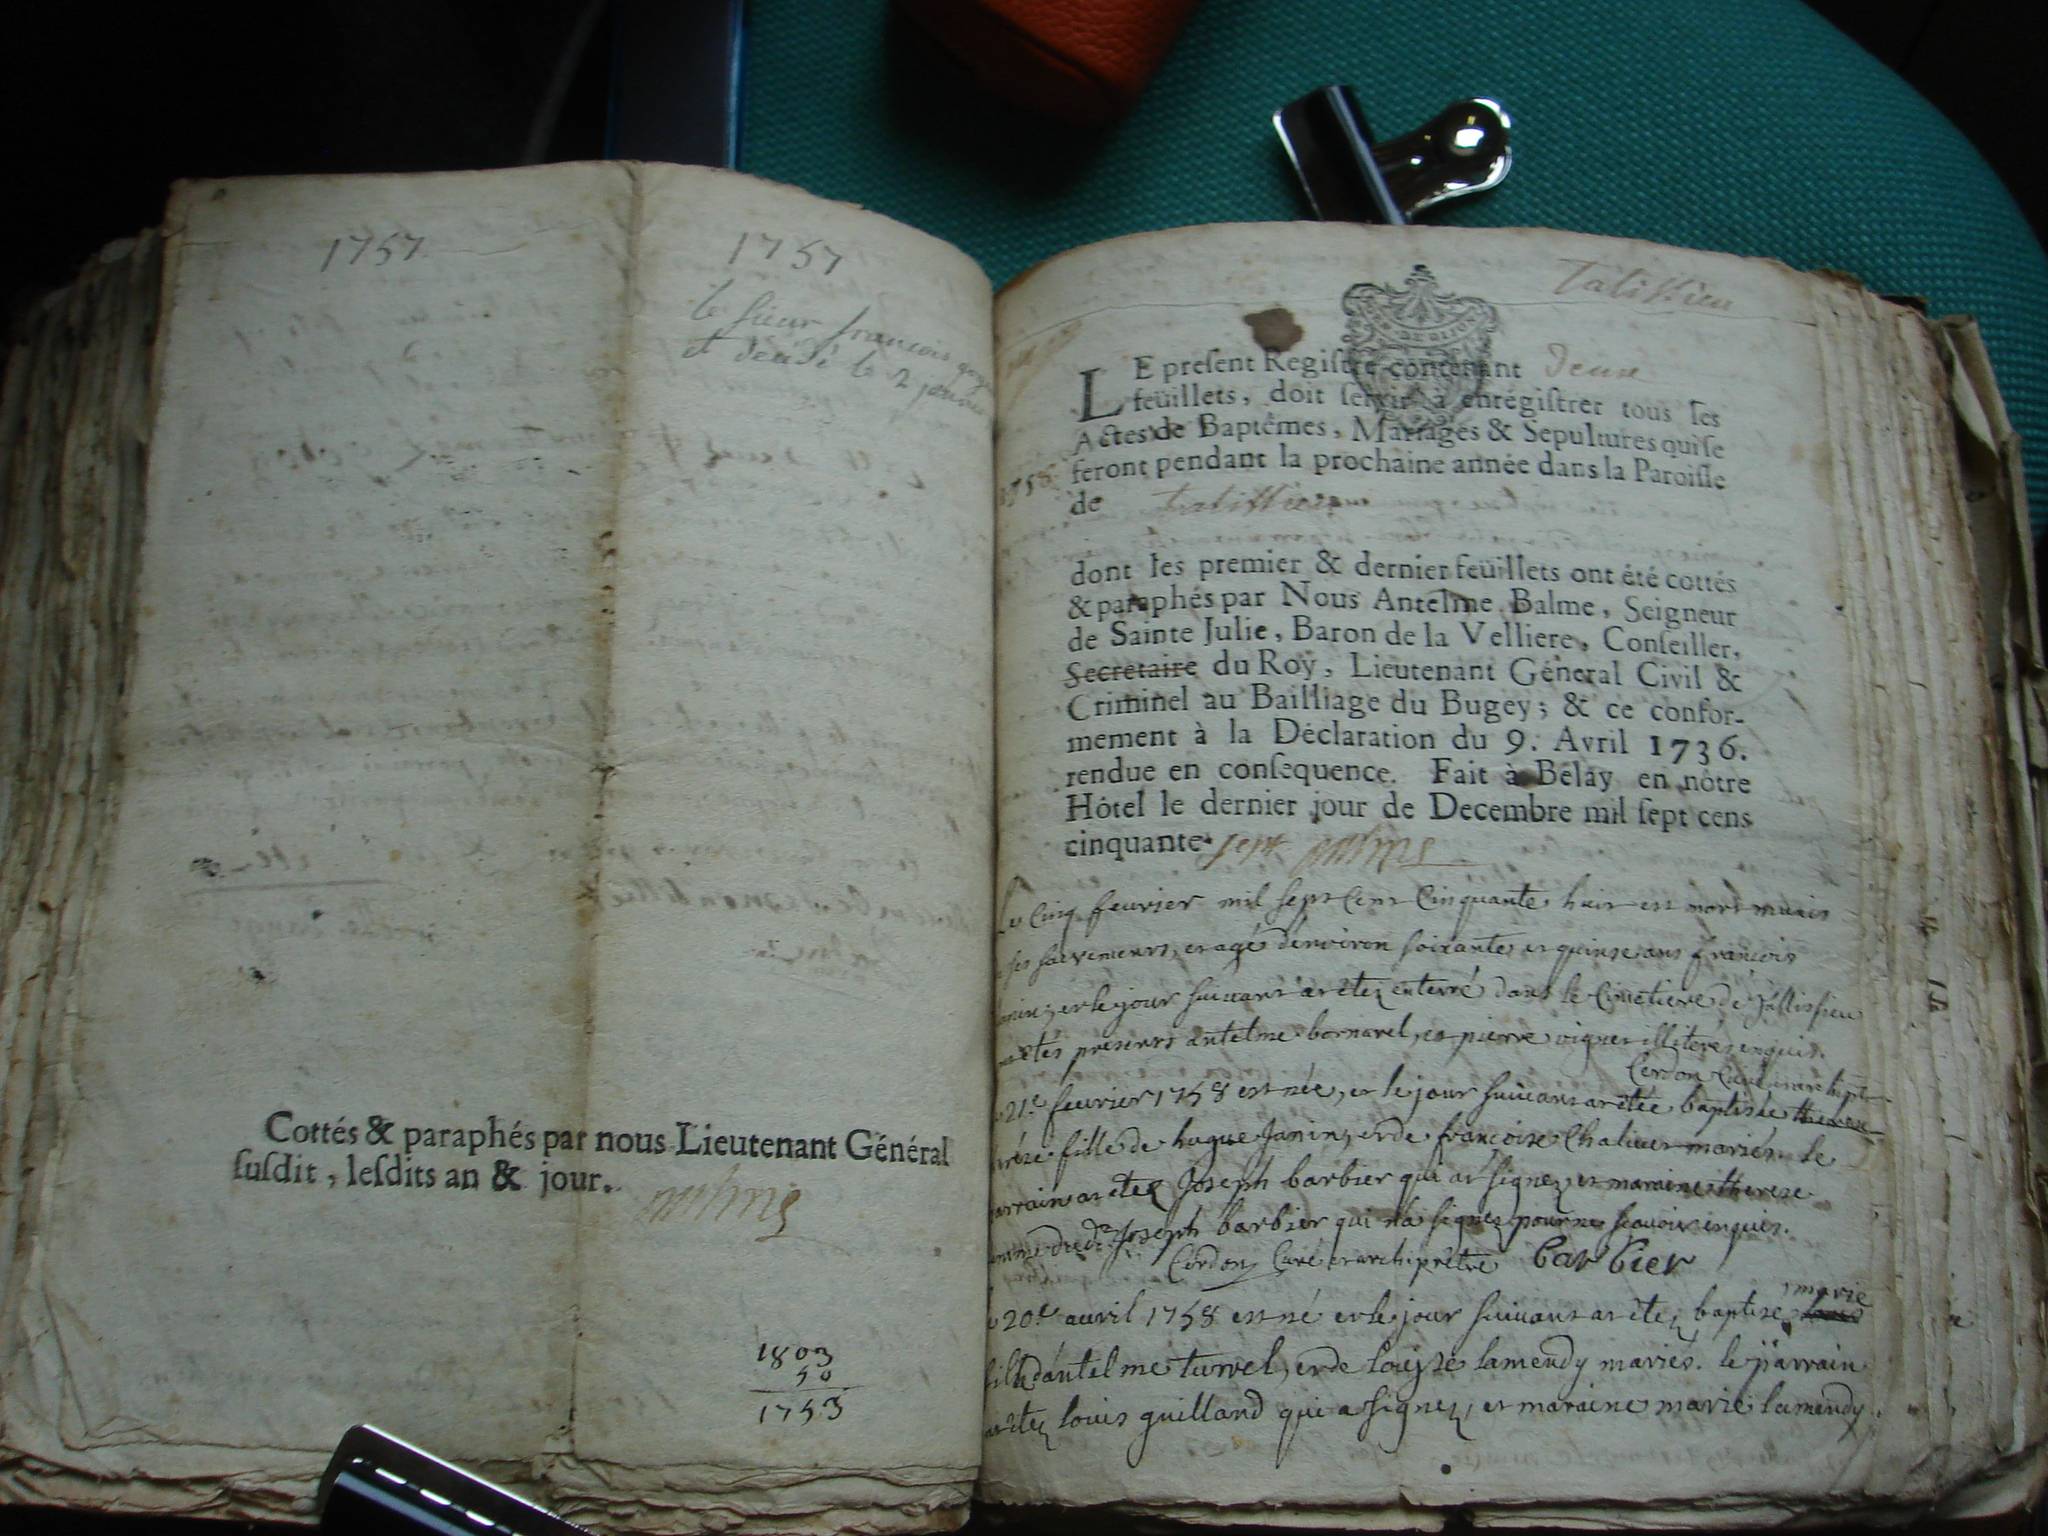 1757
1757
le sieur francois
et decédé le 2 janvier
Cottés & paraphés par nous Lieutenant Général
ſuſdit, leſdits an & jour.
1803
50
1753
Talissieu
LE preſent Regiſtre contenant deux
feüillets, doit ſervir à enrégiſtrer tous les
Actes de Baptêmes, Mariages & Sepultures qui ſe
feront pendant la prochaine année dans la Paroiſſe
de talissieu
1758
dont les premier & dernier feüillets ont été cottés
& paraphés par Nous Antelme Balme, Seigneur
de Sainte Julie, Baron de la Velliere, Conſeiller,
Secretaire du Roy, Lieutenant Géneral Civil &
Criminel au Bailliage du Bugey; & ce confor-
mement à la Déclaration du 9. Avril 1736.
rendue en conſequence. Fait à Belay en nôtre
Hôtel le dernier jour de Decembre mil ſept cens
cinquante sept
Le Cinq feurier mil sept Cent Cinquante huit est mort munis
de ses sacrements, et agé d'environ soixante et quinse ans francois
et le jour suiuant at etez enterré dans le Cimetiere de Tallissieu
presents antelme bornarel, et pierre viques illiterés enquis.
Cerdon Curé et archiptre
21.e feurier 1758 est née, et le jour suiuant at etée baptisée
fille de hugue Janin, et de françoise Chaliuet mariés. le
parrain at etez Joseph barbier qui at signez, et maraine therese
femme du dt. Joseph barbier qui n'a signez pour ne scauoir enquis.
Cerdon Curé et archiprêtre Barbier
20.e auril 1758 est né et le jour suiuant at etez baptise marie
fille d'antelme turrel, et de louise lamendy mariés. le parrain
at etez louis guilland qui a signez, et maraine marie lamendy